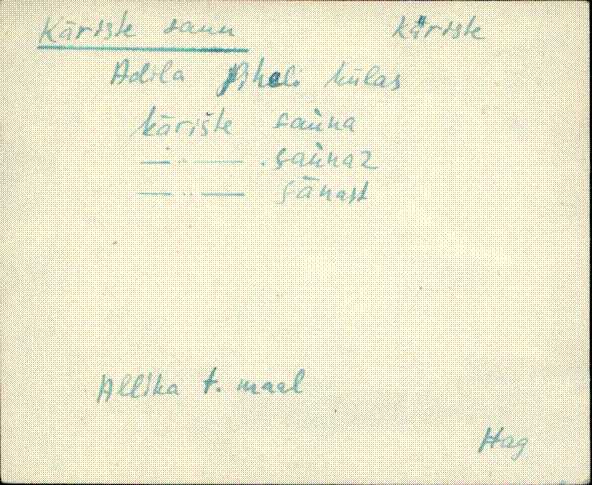 Käriste saun Käriste
Adila Piheli külas
kärište saùna
— " — saùnaz
— " — sānast
Allika t. maal
Hag